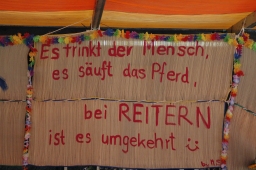 Es trinkt der Mensch,
es säuft das Pferd,
bei REITERN
ist es umgekehrt